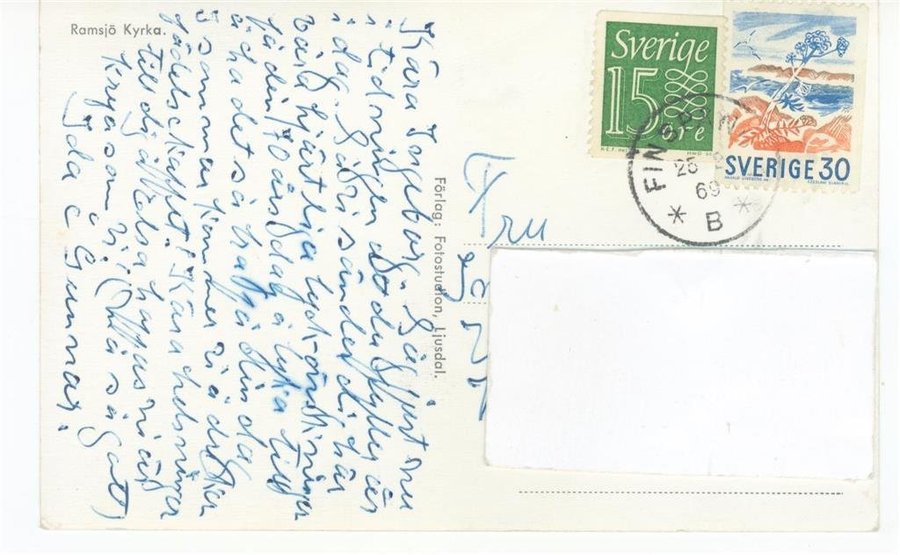 Ramsjö Kyrka.
Kära Ingeborg. Såg just nu
i tidningen att du fyller år
i dag. Så vi sänder dig här
våra hjärtliga lyckönskningar
på din 70 årsdag å lycka till
å ha det så bra på din dag
I sommar kommer vi å dricker
födelsekaffet! Kära hälsningar
till dig å hoppas ni är
krya som vi! (Må så gott)
Ida & Gunnar.
Förlag: Fotostudion, Ljusdal.
Sverige
15 öre
SVERIGE 30
25
69
B
Fru